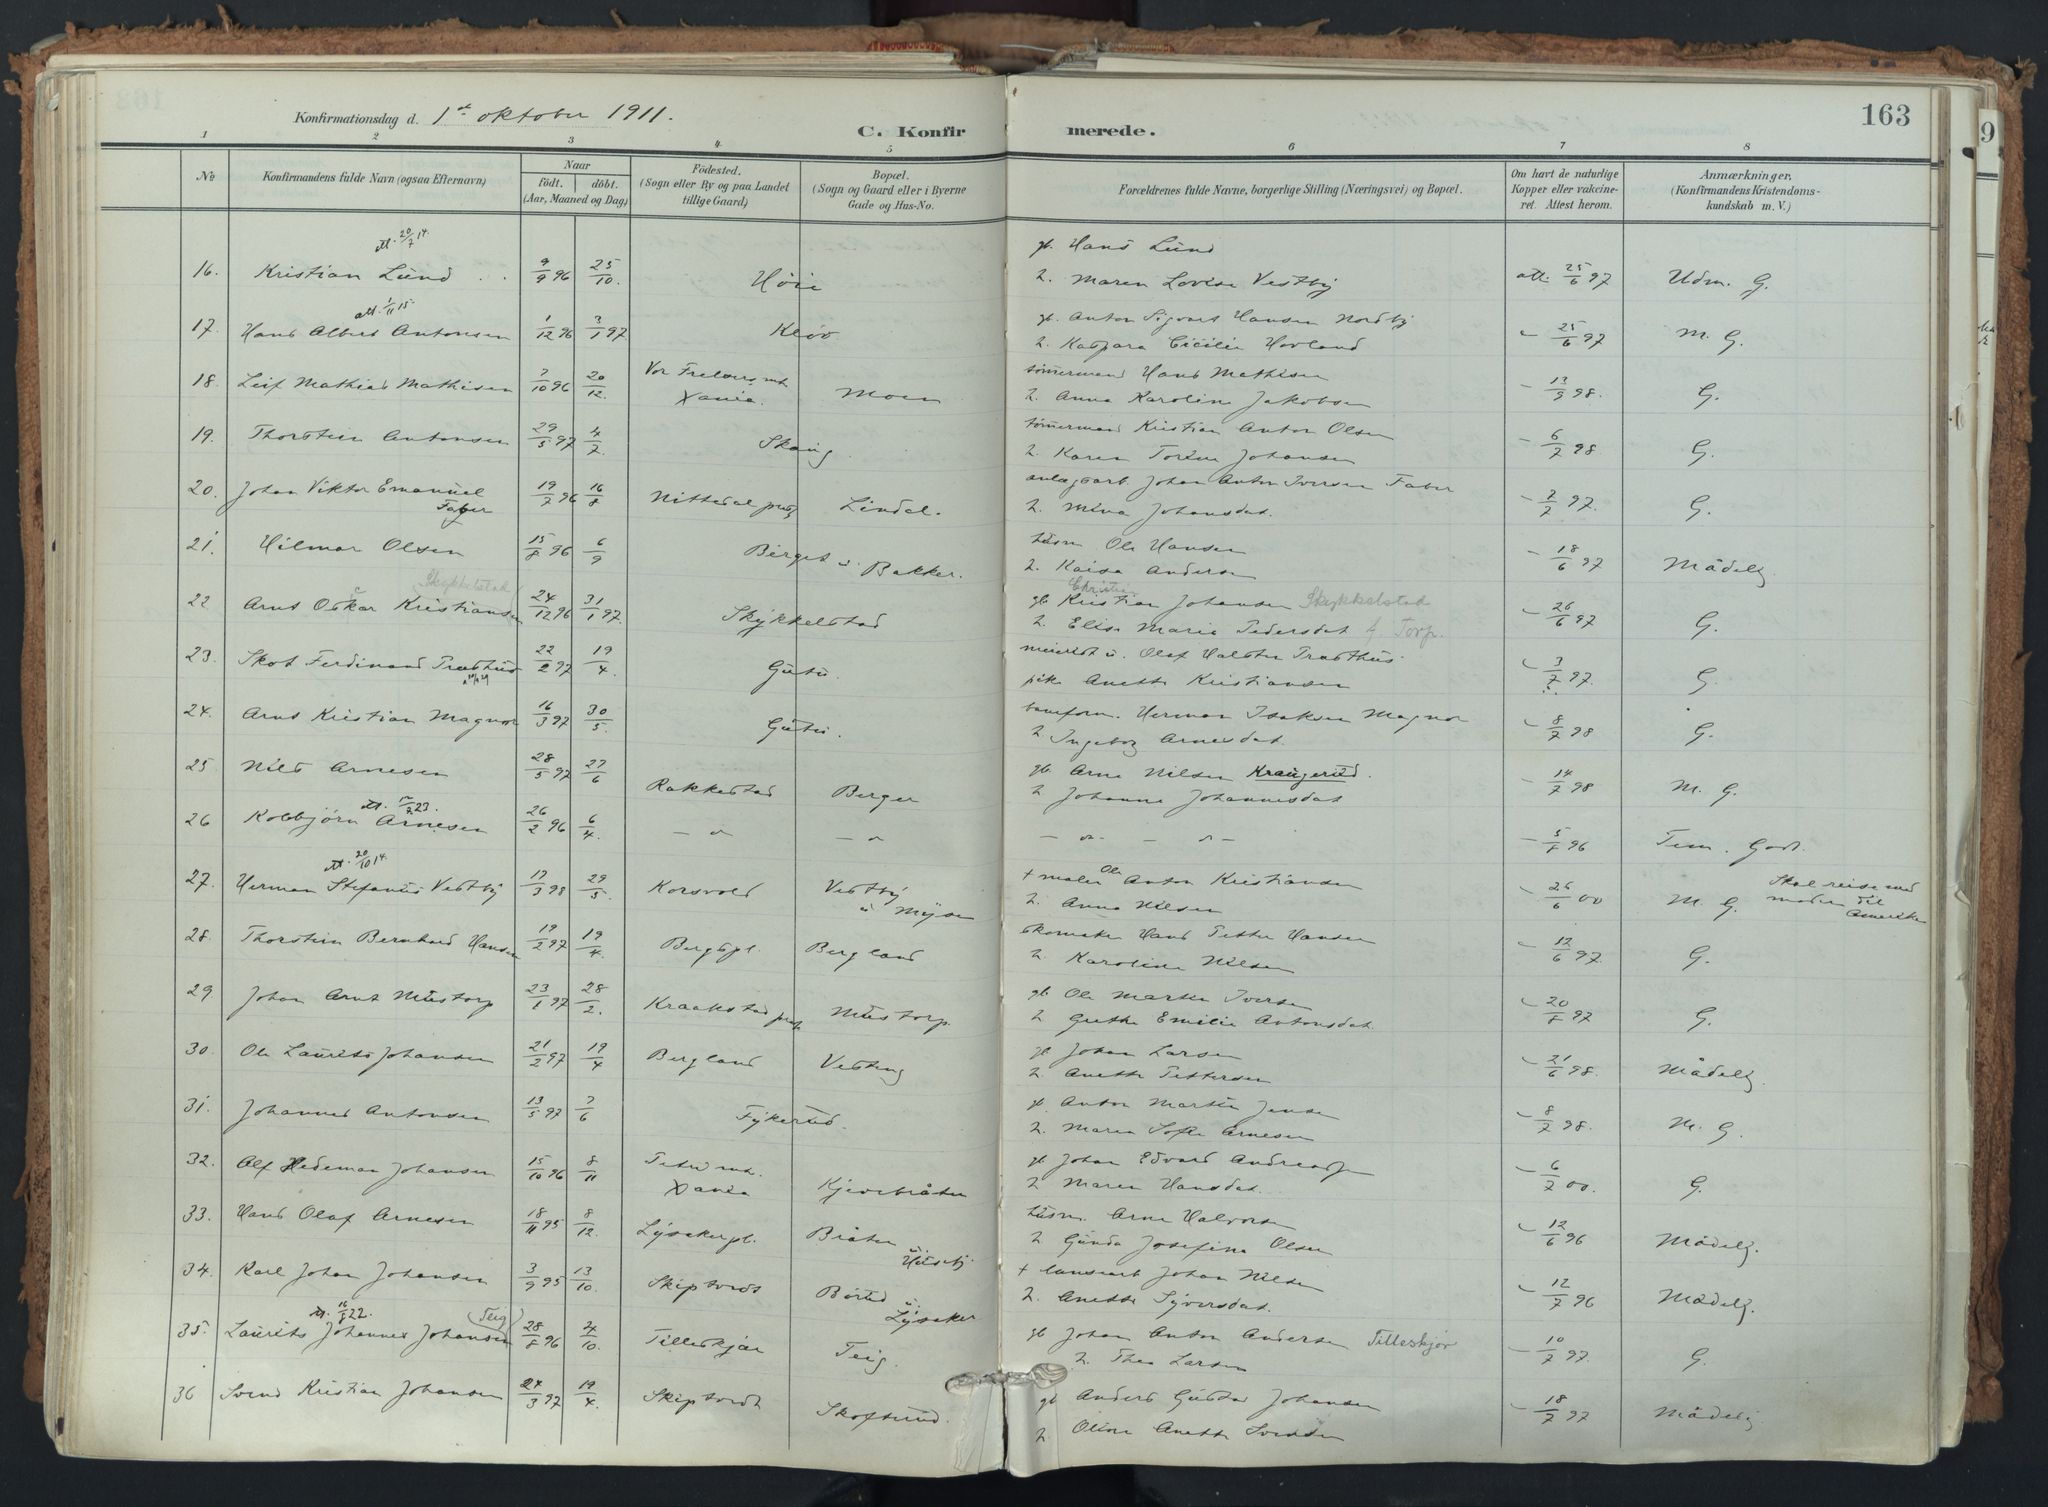 163
Konfirmationsdag d. 1ste oktober 1911.
C. Konfirmerede.
1 2 3 4 5 6 7 8
No
Konfirmandens fulde Navn (ogsaa Efternavn)
Naar
födt. döbt.
(Aar, Maaned og Dag)
Födested.
(Sogn eller By og paa Landet
tillige Gaard)
Bopæl.
(Sogn og Gaard eller i Byerne
Gade og Hus-No.
Forældrenes fulde Navne, borgerlige Stilling (Næringsvei) og Bopæl.
Om havt de naturlige
Kopper eller vakcine-
ret. Attest herom.
Anmærkninger.
(Konfirmandens Kristendoms-
kundskab m. V.)
att. 20/7 14. gb. Hans Lund
16. Kristian Lund 9/9 96 25/10. Höie h. Maren Lovise Vestby att. 25/6 97 Udm. G.
att. 1/11 15 gb. Anton Sigvart Hansen Nordby
17. Hans Albert Antonsen 1/12 96 3/1 97 Klöv h. Kaspara Cicilie Hovland 25/6 97 M. G.
18. Leif Mathias Mathisen 7/10 96 20/12. Vor Frelsers mh. Xania. Moen tömmermand Hans Mathisen
h. Anna Karoline Jakobsen 13/9 98. G.
19. Thorstein Antonsen 29/5 97 4/7 Skaug tömmermand Kristian Anton Olsen
h. Karen Torine Johansen 6/7 98 G.
20. Johan Viktor Emanuel Faber 19/7 96 16/8 Nittedal prstg Lindal. anlægsarb. Johan Anton Iversen Faber
h. Mina Johansdat. 7/7 97. G.
21. Hilmar Olsen 15/8 96 6/9 Berget u. Bakker. husm. Ole Hansen
h. Kaisa Andersen 18/6 97 Mådelig.
Skykkelstad Christian
22 Arnt Oskar Kristiansen 24/12 96 31/1 97. Skykkelstad gb Kristian Johansen Skykkelstad
h. Elise Marie Pedersdat f Torp. 26/6 97 G.
23. Skot Ferdinand Trasthus 22/2 97 19/4. Gutu. Olaf Halsten Trasthus
pike Anette Kristiansen 3/7 97. G.
24. Arnt Kristian Magnor 16/3 97 30/5. Gutu. baneform. Herman Isaksen Magnor
h. Ingeborg Arnesdat. 8/7 98 G.
25 Nils Arnesen 28/5 97 27/6 Rakkestad Berger gb. Arne Nilsen Kraugerud.
h Johanne Johannesdat 14/7 98 M. G.
att. 12/7 23.
26 Kolbjörn Arnesen 26/2 96 6/4. — " — " — " — " — 5/8 96 Tem. Godt.
att. 20/10 14
27. Herman Stefanus Vestby 17/3 98 29/5. Korsvold Vestby u Mysen + maler Ole Anton Kristiansen
h. Anna Nilsen 26/6 00 M. G. Skal reise med moder til Amerika
28. Thorstein Bernhard Hansen 19/2 97 19/4. Bergspl. Bergland skomaker Hans Petter Hansen
h. Karoline Nilsen 12/6 97. G.
29 Johan Arnt Mustorp 23/1 97 28/2. Kraakstad prstg Mustorp. gb. Ole Martin Iversen
h Grethe Emilie Antonsdat. 20/8 97 G.
30. Ole Laurits Johansen 21/2 97 19/4 Bergland Vesteng gb Johan Larsen
h. Anette Pettersen 21/6 98. Mådelig.
31. Johannes Antonsen 13/5 97 7/6 Fykerud. gb. Anton Martin Jensen
h. Maren Sofie Arnesen 8/7 98. M. G.
32. Alf Hedeman Johansen 15/10 96 8/11 Petri mh. Xania Kjeverbråten gb Johan Edvard Andreassen
h Maren Hansdat. 6/7 00. G.
33. Hans Olaf Arnesen 18/11 95 8/12. Lysakerpl. Bråten u. Huseby husm. Arne Halvorsen
h Gunda Josefine Olsen 12/6 96 Mådelig.
34. Karl Johan Johansen 3/9 95 13/10. Skiptvedt Börud u. Lysaker + Johan Nilsen
h. Anette Syversdat. 12/7 96 Mådelig.
att. 16/5 22. (Teig)
35. Laurits Johannes Johansen 28/8 96 4/10 Tilleskjær Teig. gb Johan Anton Andersen Tilleskjær
h. Thea Larsen 10/7 97. G.
36 Svend Kristian Johansen 24/3 97 19/4. Skiptvedt Skofsrud. gb Anders Gustav Johansen
h Oline Anette Svendsen 18/7 97 Mådelig.